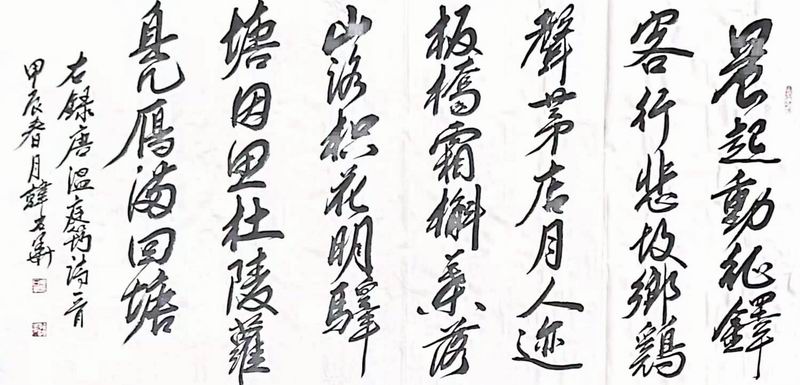 晨起動征鐸
客行悲故鄉鷄
聲茅店月人迹
板橋霜槲葉落
山路枳花明驛
塘因思杜陵
鳧雁滿回塘
右録唐温庭筠詩一首
甲辰春月韓